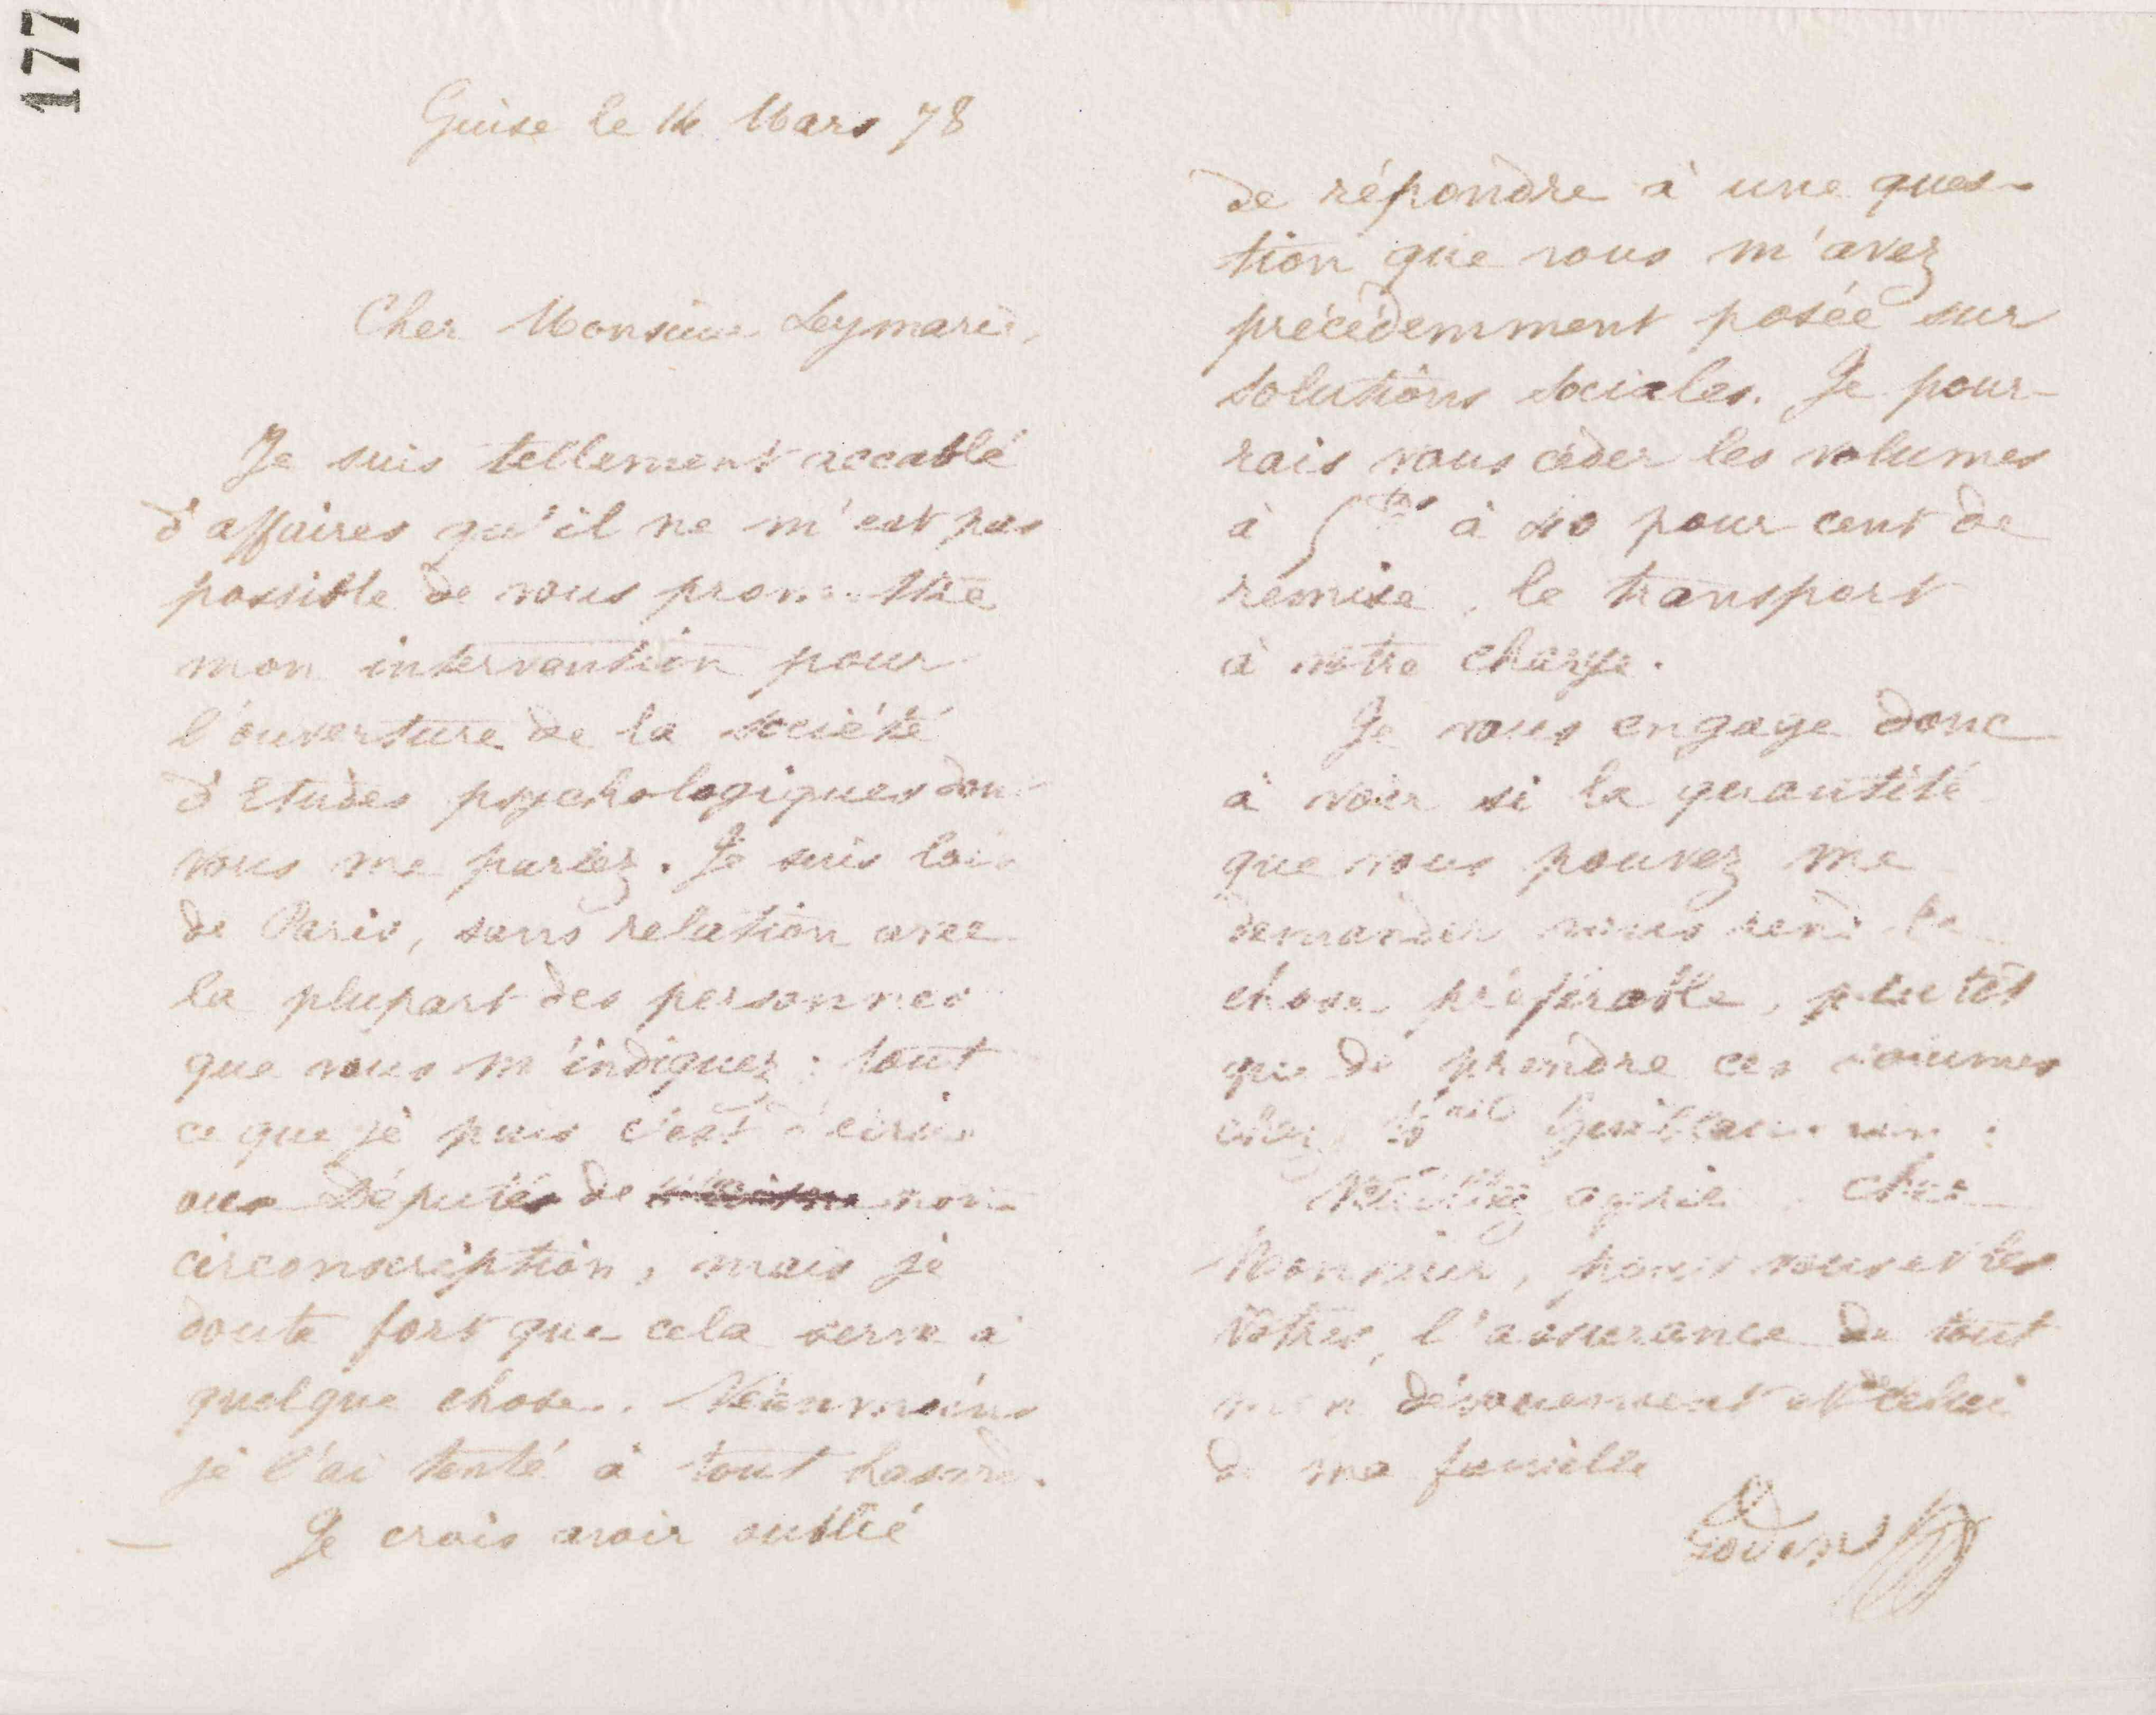 177
Guise le 14 Mars 78
Cher Monsieur Leymarie,
Je suis tellement accablé
d'affaires qu'il ne m'est pas
possible de vous promettre
mon intervention pour
l'ouverture de la société
d'Etudes psychologiques dont
vous me parlez. Je suis loin
de Paris, sans relation avec
la plupart des personnes
que vous m'indiquez : tout
ce que je puis c'est d'écrire
aux Députés de notre
circonscription, mais je
doute fort que cela serve à
quelque chose. Néanmoins
je l'ai tenté à tout hasard.
Je crois avoir oublié
de répondre à une ques-
tion que vous m'avez
précédemment posée sur
solutions sociales. Je pour-
rais vous céder les volumes
à 5 à 40 pour cent de
remise, le transport
à votre charge.
Je vous engage donc
à voir si la quantité
que vous pouvez me
demander vous rend la
chose préférable, plutôt
que de prendre ces volumes
chez
Veuillez agréer, cher
Monsieur, pour vous et les
vôtres, l'assurance de tout
mon dévouement et celui
de ma famille
Godin